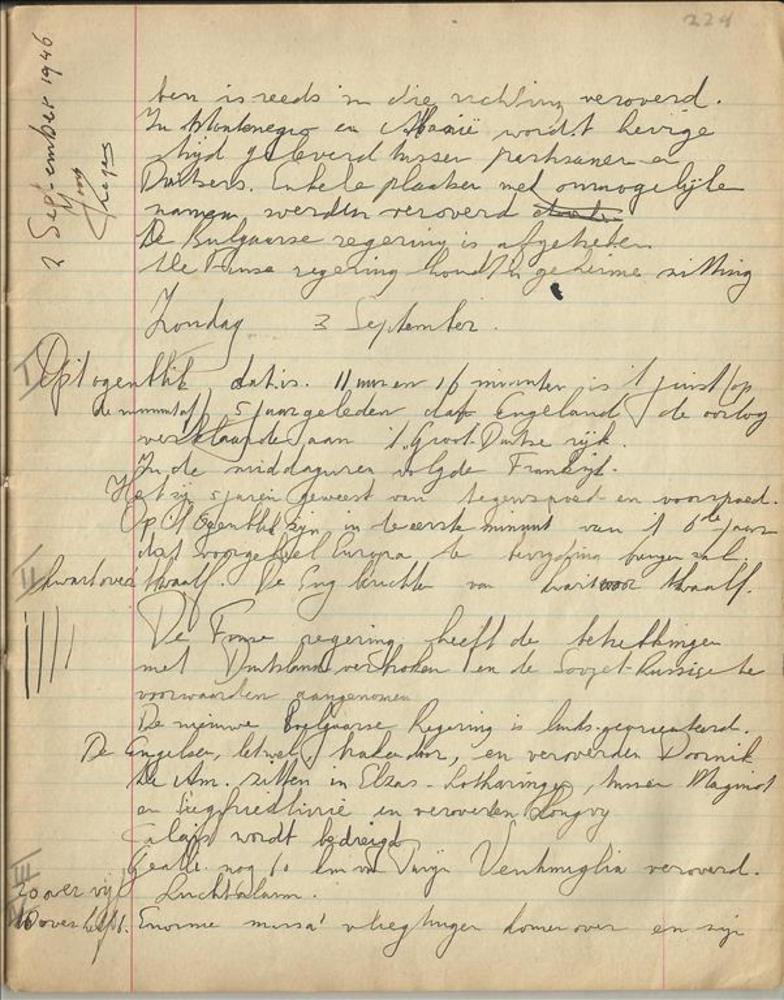 224
2 September 1946
ten is reeds in die richting veroverd.
In Montenegro en Albanië wordt hevige
strijd geleverd tussen partisanen en
Duitsers. Enkele plaatsen met onmogelijke
namen werden veroverd
De Bulgaarse regering is afgetreden
De Finse regering houdt 'n geheime zitting
Zondag 3 September.
I Op 't ogenblik, dat is. 11 uur en 16 minuten is 't juist (op
de minuut af) 5 jaar geleden dat Engeland de oorlog
verklaarde aan 't Groot-Duitse rijk.
In de middaguren volgde Frankrijk.
Het zijn 5 jaren geweest van tegenspoed en voorspoed.
Op 't Ogenblik zijn in de eerste minuut van 't 6de jaar
dat voor geheel Europa de bevrijding brengen zal.
II kwart over twaalf. De Eng berichten van kwart voor twaalf.
De Finse regering heeft de betrekkingen
met Duitsland verbroken en de Sovjet-Russische
voorwaarden aangenomen
De nieuwe Bulgaarse Regering is links-georiënteerd.
De Engelsen, letwel, braken door, en veroverden Doornik
De Am. zitten in Elzas-Lotharingen, tussen Maginot
en Siegfriedlinie en veroverden Longvy
Calais wordt bedreigd
Geall. nog 60 km van Turijn Ventimiglia veroverd.
III 20 over vijf Luchtalarm.
10 over half 6. Enorme massa's vliegtuigen komen over en zijn